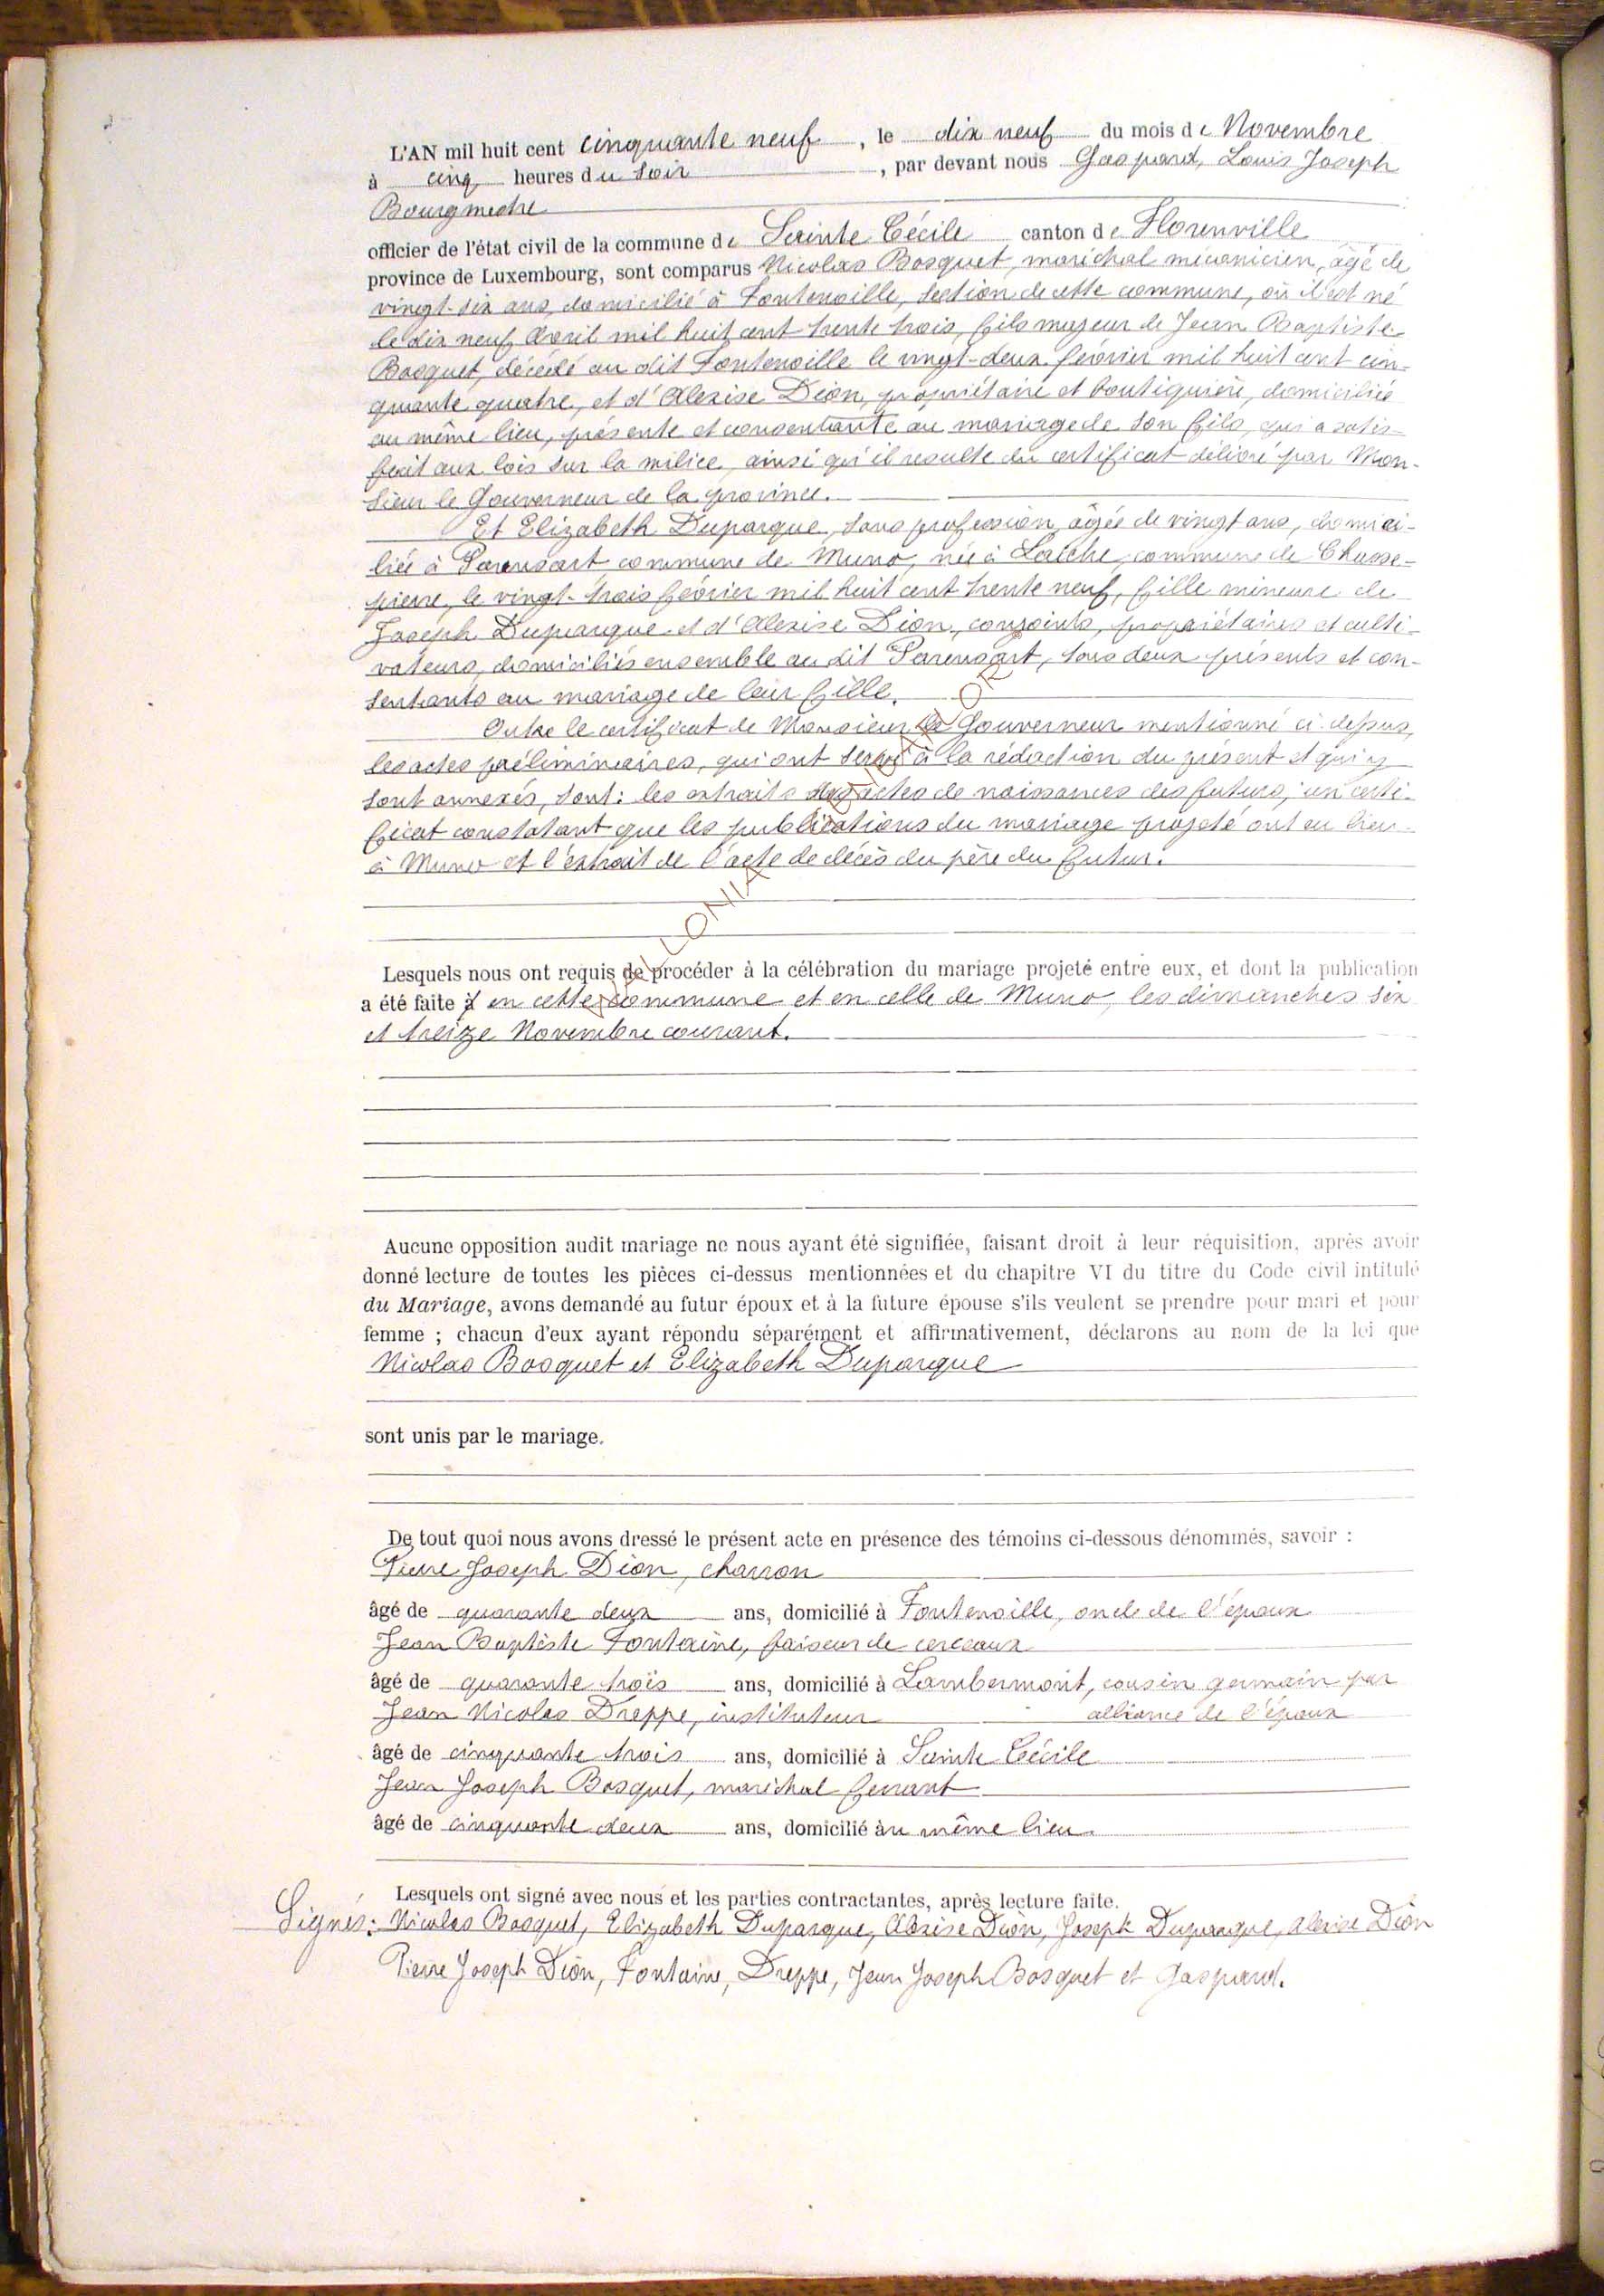 L'AN mil huit cent cinquante neuf, le dix neuf du mois de Novembre
à cinq heures du soir, par devant nous Gaspard, Louis Joseph
Bourgmestre
officier de l'état civil de la commune de Sainte Cécile canton de Florenville
province de Luxembourg, sont comparus Nicolas Bosquet, maréchal mécanicien, âgé de
vingt-six ans, domicilié à Fontenoille, section de cette commune, où il est né
le dix neuf Avril mil huit cent trente trois, fils majeur de Jean Baptiste
Bosquet, décédé au dit Fontenoille le vingt-deux février mil huit cent cin-
quante quatre, et d'Alexise Dion, propriétaire et boutiquière, domiciliée
au même lieu, présente et consentante au mariage de son fils, qui a satis-
fait aux lois sur la milice, ainsi qu'il résulte du certificat délivré par Mon-
sieur le Gouverneur de la province.
Et Elizabeth Duparque, sans profession, âgée de vingt ans, domici-
liée à Parensart commune de Muno, née à Laiche, commune de Chasse-
pierre, le vingt-trois février mil huit cent trente neuf, fille mineure de
Joseph Duparque et d'Alexise Dion, conjoints, propriétaires et culti-
vateurs, domiciliés ensemble au dit Parensart, tous deux présents et con-
sentants au mariage de leur fille.
Outre le certificat de Monsieur le Gouverneur mentionné ci-dessus,
les actes préliminaires, qui ont servi à la rédaction du présent et qui y
sont annexés, sont: les extraits des actes de naissances des futurs, un certi-
ficat constatant que les publications du mariage projeté ont eu lieu
à Muno et l'extrait de l'acte de décès du père du futur.
Lesquels nous ont requis de procéder à la célébration du mariage projeté entre eux, et dont la publication
a été faite à en cette commune et en celle de Muno, les dimanches six
et treize Novembre courant.
Aucune opposition audit mariage ne nous ayant été signifiée, faisant droit à leur réquisition, après avoir
donné lecture de toutes les pièces ci-dessus mentionnées et du chapitre VI du titre du Code civil intitulé
du Mariage, avons demandé au futur époux et à la future épouse s'ils veulent se prendre pour mari et pour
femme ; chacun d'eux ayant répondu séparément et affirmativement, déclarons au nom de la loi que
Nicolas Bosquet et Elizabeth Duparque
sont unis par le mariage.
De tout quoi nous avons dressé le présent acte en présence des témoins ci-dessous dénommés, savoir :
Pierre Joseph Dion, charron
âgé de quarante deux ans, domicilié à Fontenoille, oncle de l'époux
Jean Baptiste Fontaine, faiseur de cerceaux
âgé de quarante trois ans, domicilié à Lambermont, cousin germain par
Jean Nicolas Dreppe, instituteur alliance de l'époux
âgé de cinquante trois ans, domicilié à Sainte Cécile
Jean Joseph Bosquet, maréchal ferrant
âgé de cinquante deux ans, domicilié au même lieu.
Lesquels ont signé avec nous et les parties contractantes, après lecture faite.
Signés: Nicolas Bosquet, Elizabeth Duparque, Alexise Dion, Joseph Duparque, Alexise Dion
Pierre Joseph Dion, Fontaine, Dreppe, Jean Joseph Bosquet et Gaspard.